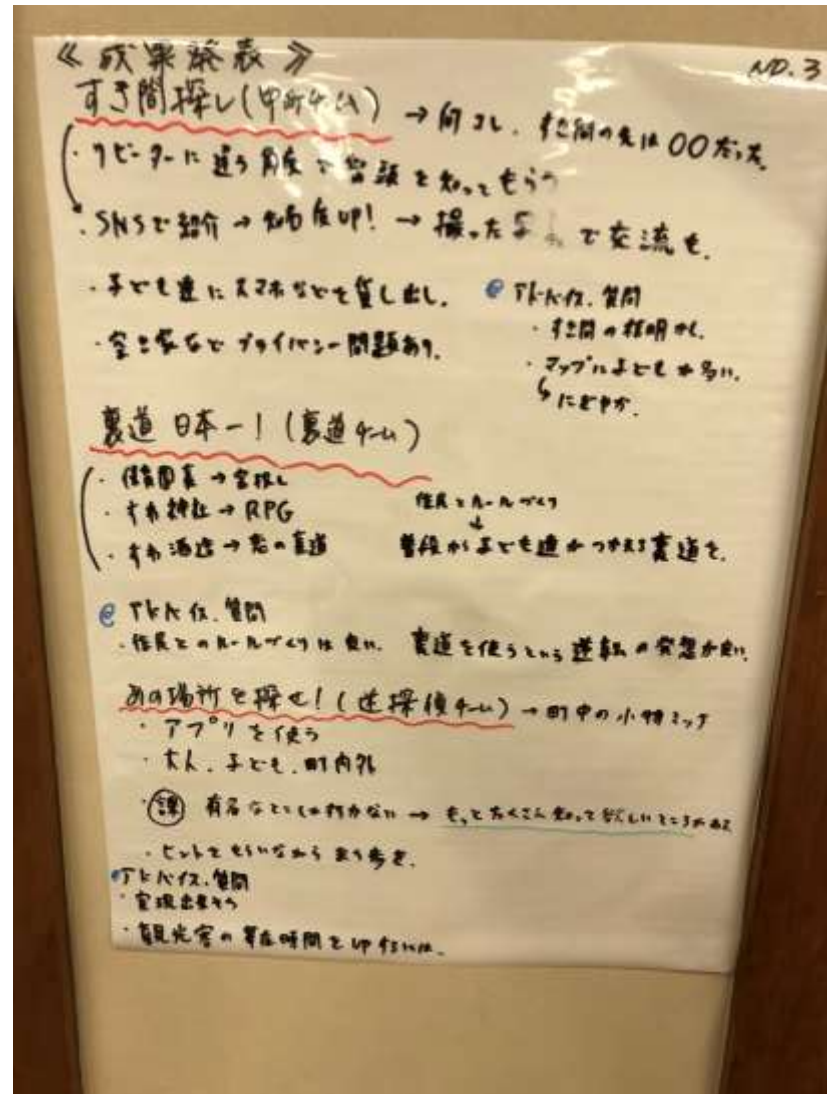 ≪成果発表≫ NO.3
すき間探し(中町チーム) → 向コレ、すき間の先は〇〇だった。
・リピーターに違う角度で 知ってもらう
・SNSで紹介→知名度UP! → 撮った で交流も。
・子ども達にスマホなどを貸し出し。
・空き家など プライバシー問題あり。
@アドバイス、質問
・すき間の 明かし
・マップに子どもが多い。
↳にぎやか。
裏道 日本一!(裏道チーム)
・ →宝探し
・すわ神社→RPG
・すわ酒造→ の裏道
住民とルールづくり
↓
普段から子ども達がつかえる裏道を。
@アドバイス、質問
・住民とのルールづくりは良い。 裏道を使うという逆転の発想が良い。
あの場所を探せ!(迷探偵チーム) → 町中の小物ミッケ
・アプリを使う
・大人、子ども、町内外
・課 有名なとこしか行かない → もっとたくさん知って欲しいところがある
・ヒントをもらいながら まち歩き。
@アドバイス、質問
・実現出来そう
・観光客の滞在時間をUPするには。